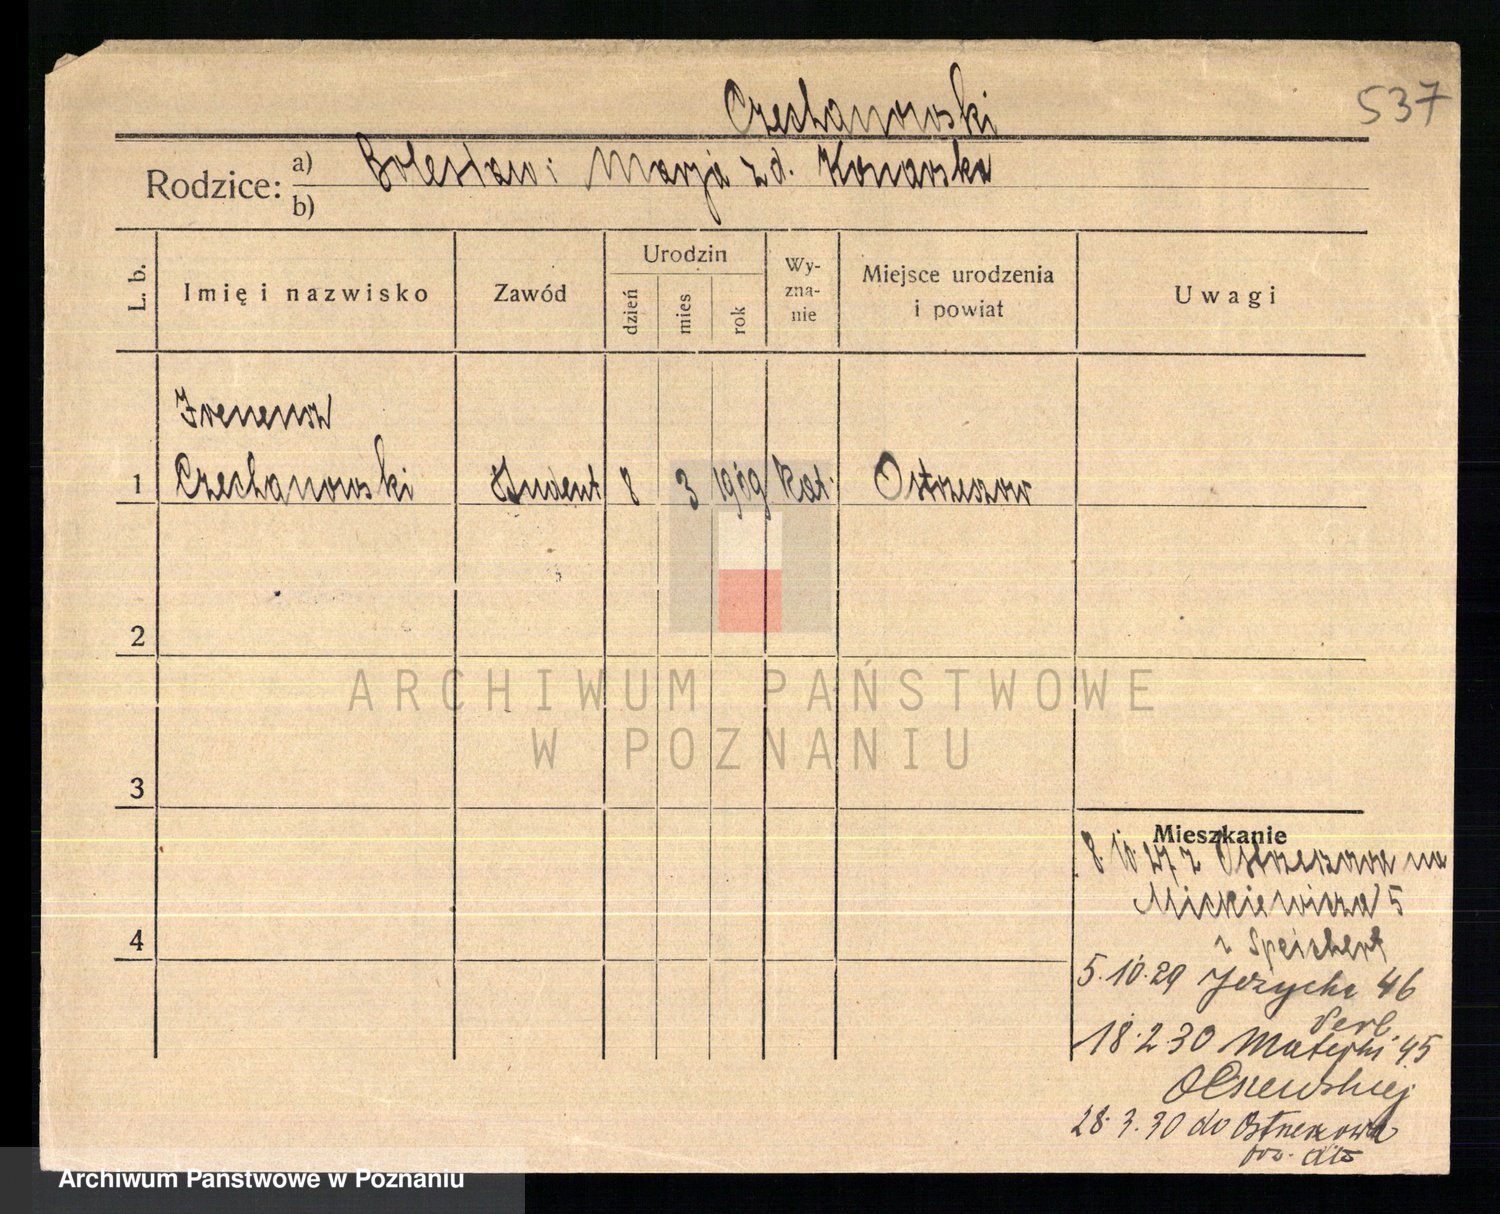 Czechanowski
537
Rodzice: a) Bolesław i Marja z d. Konarska
b)
L. b.
Imię i nazwisko
Zawód
Urodzin
dzień
mies
rok
Wy-
zna-
nie
Miejsce urodzenia
i powiat
Uwagi
Ireneusz
1 Czechanowski Student 8 3 1909 kat. Ostrzeszów
2
3
4
ARCHIWUM PAŃSTWOWE
W POZNANIU
Mieszkanie
8.10.27 z Ostrzeszowa na
Mickiewicza 5
Speichert
5.10.29 Jeżycka 46
18.2.30 Matejki 45
Olszewskiej
28.3.30 do Ostrzeszowa
Archiwum Państwowe w Poznaniu